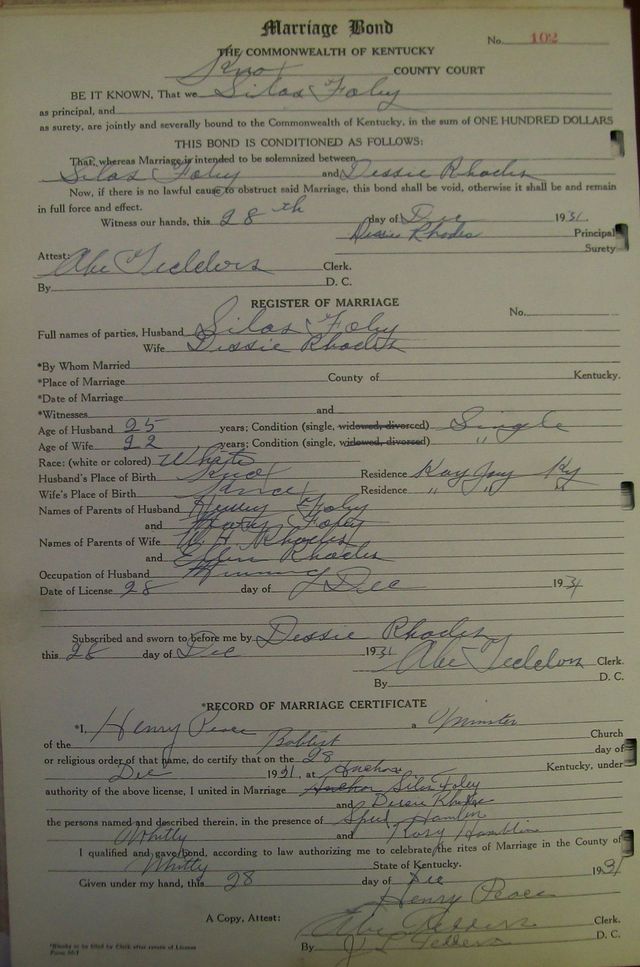 Marriage Bond
No. 102
THE COMMONWEALTH OF KENTUCKY
Knox COUNTY COURT
BE IT KNOWN, That we Silas Foley
as principal, and
as surety, are jointly and severally bound to the Commonwealth of Kentucky, in the sum of ONE HUNDRED DOLLARS
THIS BOND IS CONDITIONED AS FOLLOWS:
That, whereas Marriage is intended to be solemnized between
Silas Foley and Dessie Rhodes
Now, if there is no lawful cause to obstruct said Marriage, this bond shall be void, otherwise it shall be and remain
in full force and effect.
Witness our hands, this 28th day of Dec 1931.
Dessie Rhodes Principal
Surety
Attest:
Abe Tedders Clerk.
By D. C.
REGISTER OF MARRIAGE
No.
Full names of parties, Husband Silas Foley
Wife Dessie Rhodes
*By Whom Married
*Place of Marriage County of Kentucky.
*Date of Marriage
*Witnesses and
Age of Husband 25 years; Condition (single, widowed, divorced) Single
Age of Wife 22 years; Condition (single, widowed, divorced) "
Race: (white or colored) White
Husband's Place of Birth Knox Residence Kay Jay Ky
Wife's Place of Birth Residence " " "
Names of Parents of Husband Foley
and Foley
Names of Parents of Wife Rhodes
and Rhodes
Occupation of Husband Mining
Date of License 28 day of Dec 1931
Subscribed and sworn to before me by Dessie Rhodes
this 28 day of Dec 1931
Abe Tedders Clerk.
By D. C.
*RECORD OF MARRIAGE CERTIFICATE
*I, Henry Peace a Minister
of the Babtist Church
or religious order of that name, do certify that on the 28 day of
Dec 1931, at Anchor Kentucky, under
authority of the above license, I united in Marriage Anchor Silas Foley
and Dessie Rhodes
the persons named and described therein, in the presence of Speed Hamlin
Whitly and Rosy Hamblin
I qualified and gave bond, according to law authorizing me to celebrate the rites of Marriage in the County of
Whitly State of Kentucky.
Given under my hand, this 28 day of Dec 1931
Henry Peace
A Copy, Attest: Abe Tedders Clerk.
By Tedders D. C.
*Blanks to be filled by Clerk after return of License